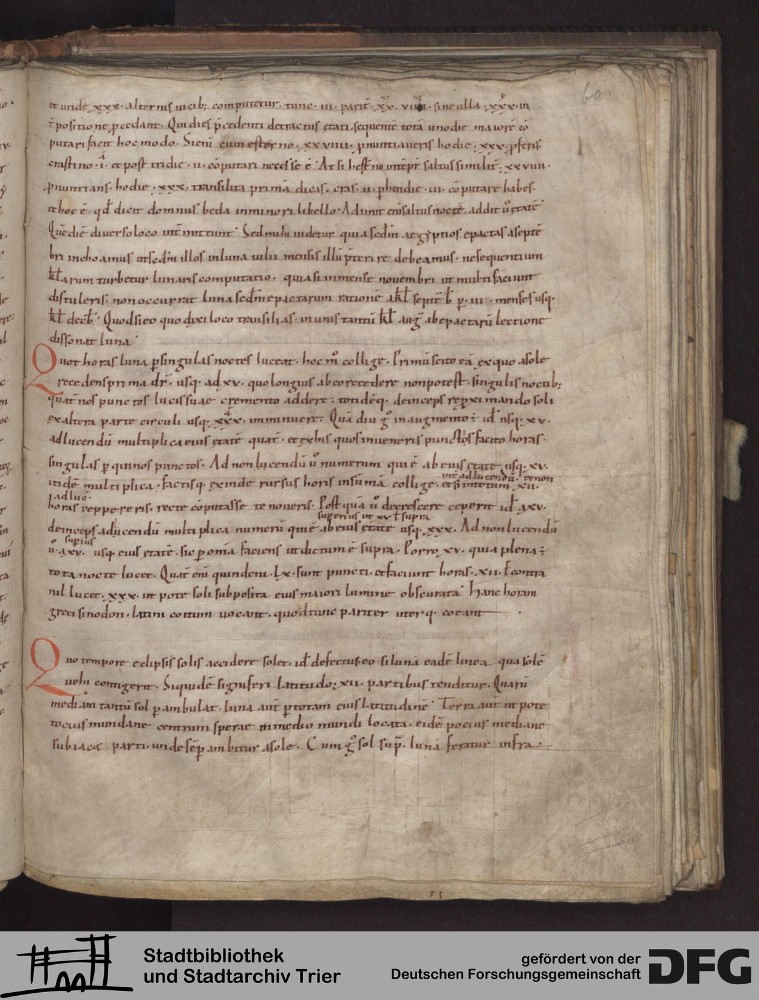 60
et unde xxx. alternis uicib; computetur. tunc. iii. parit. xx. viiii. sine ulla. xxx. in
putari facit hoc modo. Si eni cum externo. xxviiii. pnuntiaueris hodie. xxx. pferas
crastino. i. et post tridie. ii. coputari necesse e. At si
pnuntians. hodie. xxx. transilita prima dicas. cras. ii. phendie. iii. coputare habes.
et hoc e. qd dicit domnus beda in minori libello. Adimit eni saltus nocte. addit u etate
Que die diuerso loco mittunt. Sed mihi uidetur quia scdm aegyptios epactas a septe
bri inchoamus ut scdm illos in luna iulii mensis illu pterire debeamus. ne sequentium
klarum turbetur lunaris computatio. quasi in mense nouembri. ut multi faciunt
distuleris. non occurrat luna scdm epactarum ratione a kl septeb. p. iii. menses usq.
kl deceb. Quod si eo quo dixi loco transilias. in unis tantu kl aug ab epactaru lectione
dissonat luna.
Quot horas luna p singulas noctes luceat. hoc m collige. Primu scito ea ex quo a sole
recedens prima dr. usq. ad xv. quo longius ab eo recedere non potest. singulis noctib;
quatnos punctos lucis suae cremento addere. totideq. deinceps reproximando soli
ex altera parte circuli usq. xxx. imminuere. Qua diu g in augmento e. id usq. xv.
ad lucendu multiplica eius etate quat. et ex his quos inueneris punctos facito horas.
singulas p quinos punctos. Ad non lucendu u numerum qui e ab eius etate usq. xv.
uni ad lucendu. et non
itide multiplica. factisq. exinde rursus horis in suma collige. et si in totum. xii.
ad luc
horas reppereris. recte coputasse te noueris. Post qua u decrescere ceperit id a xv.
superius ut xv t supra
deinceps ad lucendu multiplica numeru qui e ab eius etate usq. xxx. Ad non lucendu
u supius
u. a xv. usq. eius etate. sic p omia faciens ut dictum e supra. Porro xv. quia plena e
tota nocte lucet. Quat eni quindeni. lx. sunt puncti. et faciunt horas. xii. E contra
nil lucet. xxx. ut pote soli subposita eius maiori lumine obscurata. Hanc horam
greci sinodon. latini coitum uocant. quod tunc pariter uterq. coeant
Quo tempore eclipsis solis accidere solet. id defectus. eo si luna eade linea qua sole
uehi contigerit. Siquide signiferi latitudo. xii. partibus tenditur. Quaru
mediam tantu sol pambulat. luna aut p totam eius latitudine. Terra aut ut pote
tocius mundane centrum spere in medio mundi locata. eide pocius mediane
subiacet parti. unde sep ambitur a sole. Cum g sol supra. luna feratur infra.
Stadtbibliothek
und Stadtarchiv Trier
gefördert von der
Deutschen Forschungsgemeinschaft
DFG